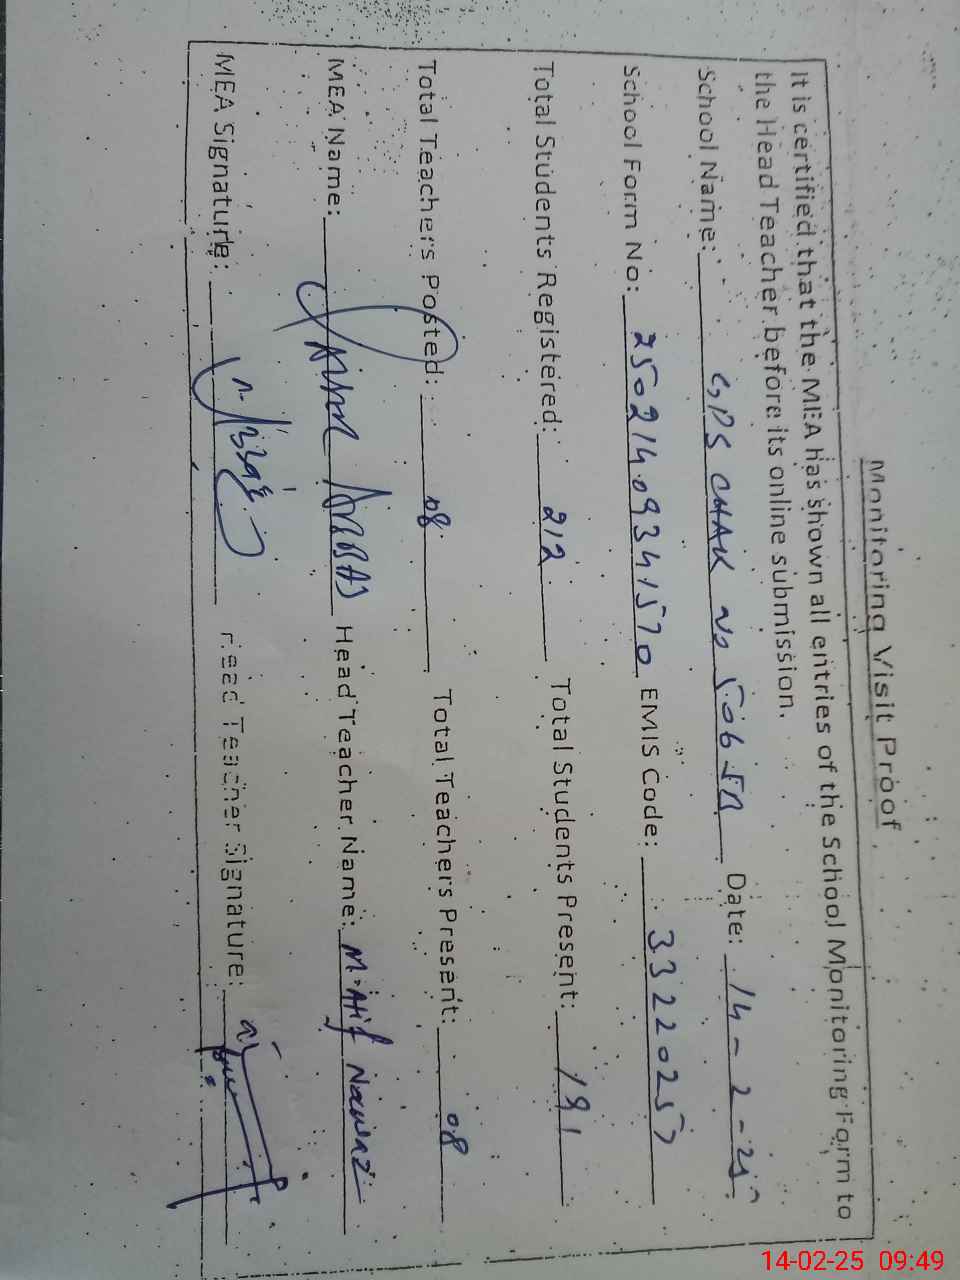 Monitoring Visit Proof
It is certified that the MEA has shown all entries of the School Monitoring Form to
the Head Teacher before its online submission.
School Name: GPS CHAK No 506 Date: 14-2-25
School Form No: 25021409341570 EMIS Code: 33220257
Total Students Registered: 212 Total Students Present: 191
Total Teachers Posted: 08 Total Teachers Present: 08
MEA Name: ABBAS Head Teacher Name: M. Atif Nawaz
MEA Signature: Head Teacher Signature:
14-02-25 09:49